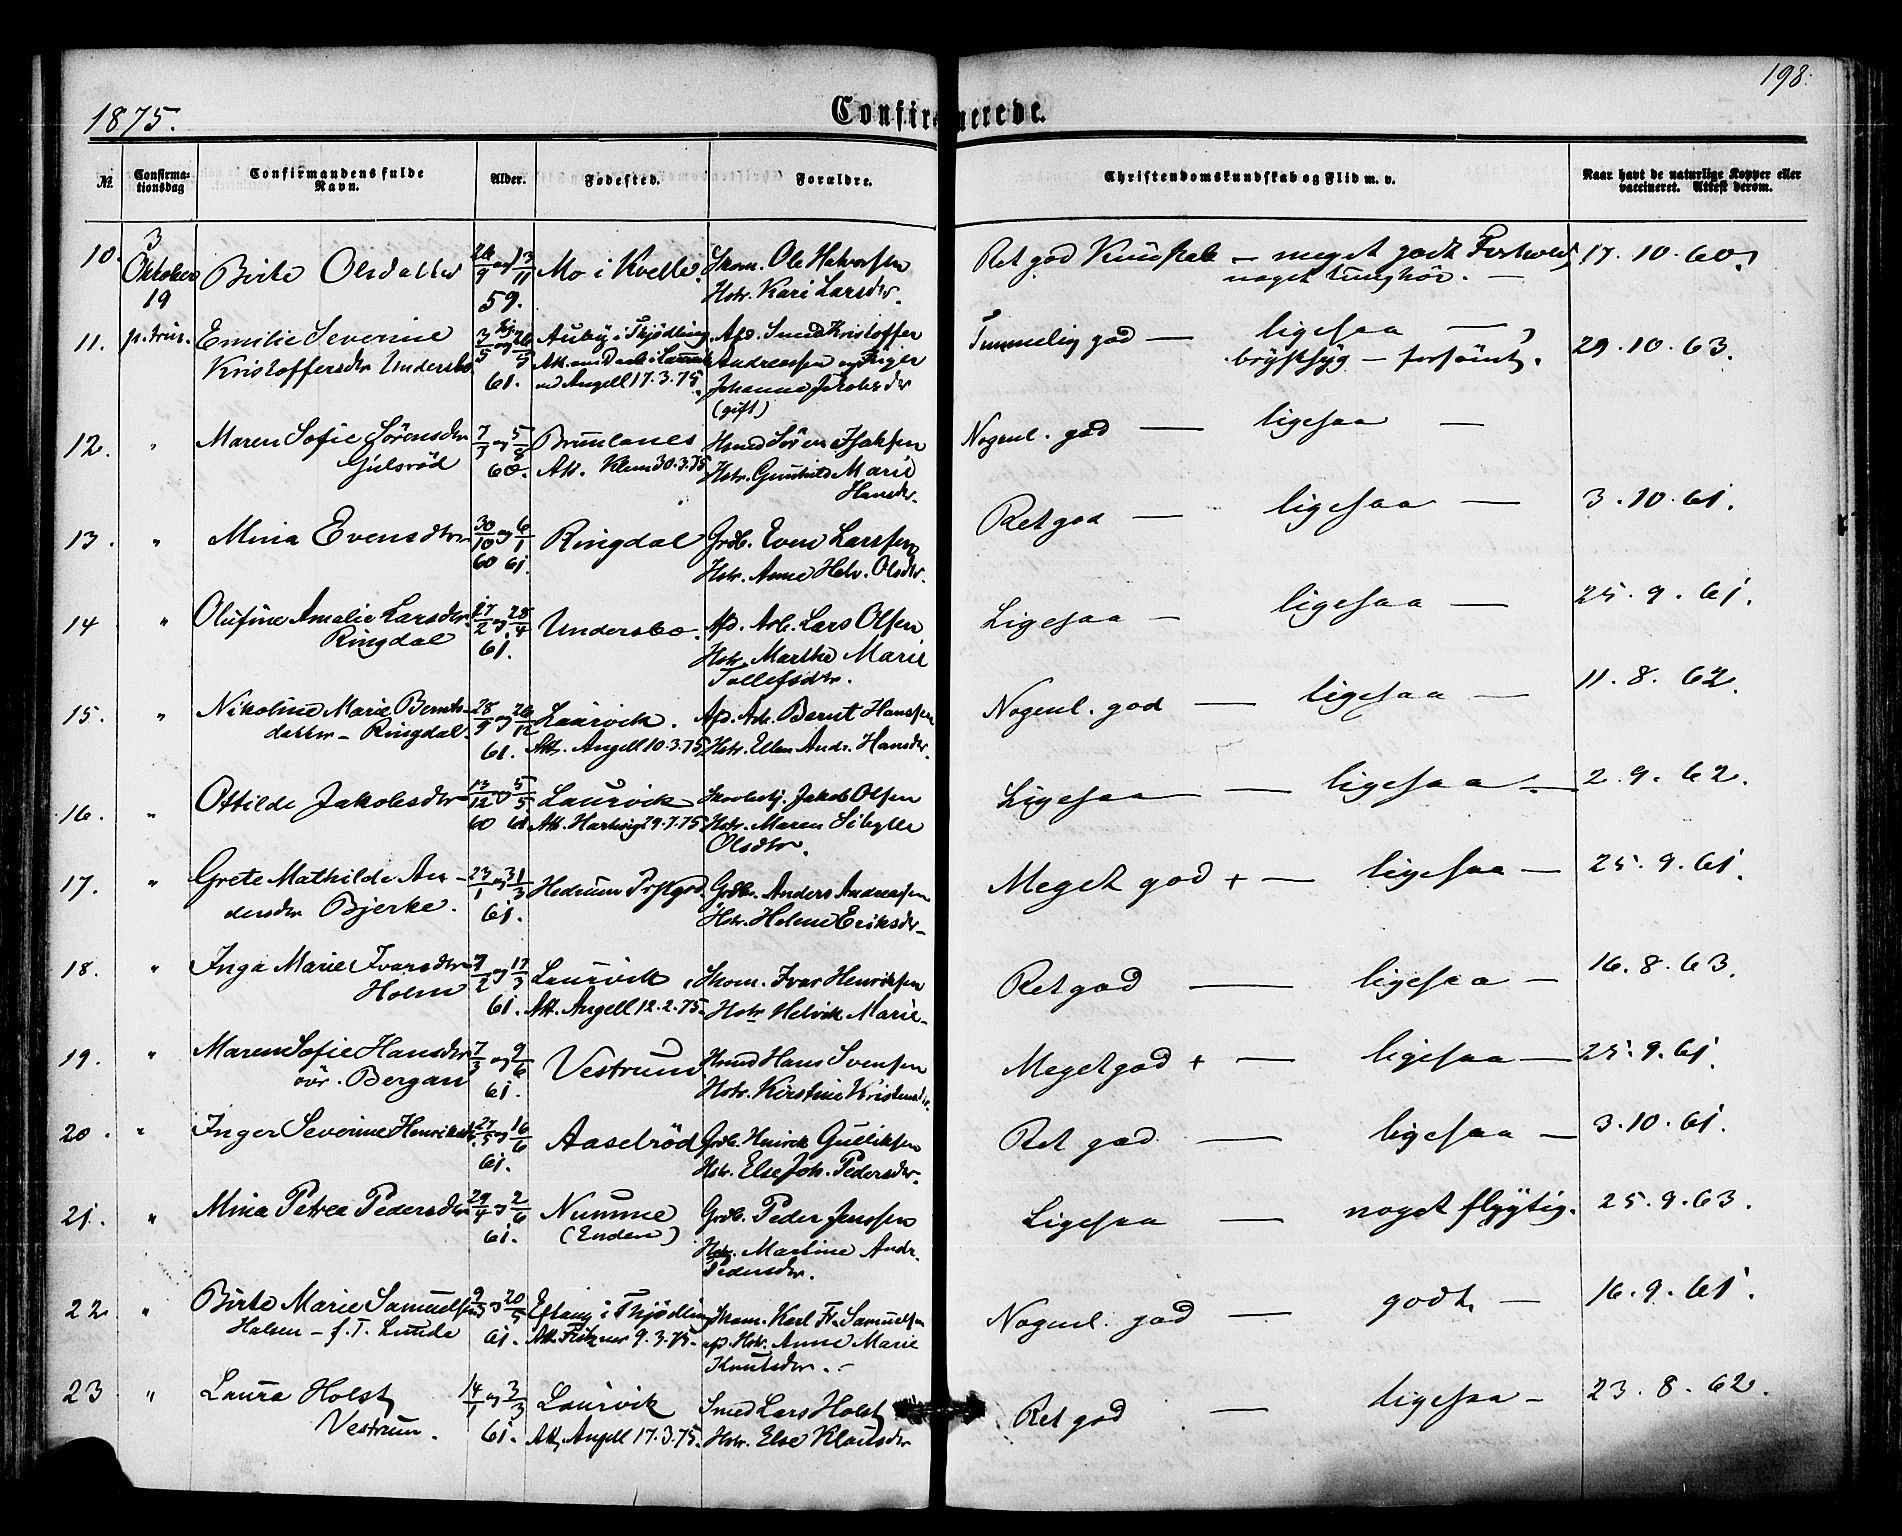 198.
1875.
Confirmerede.
№
Confirma-
tionsdag
Confirmandens fulde
Navn.
Alder.
Fødested.
Forældre.
Christendomskundskab og Flid m. v.
Naar havt de naturlige Kopper eller
vaccineret. Attest derom.
10. 3 Oktober 19 Birte Olsdatter 26/9 og 13/11 59. Mo i Kvelle. Skom. Ole Halvorsen
Hstr. Kari Larsdtr.
Ret god Kundskab — meget godt Forhold, 17. 10. 60.
noget tunghør. —
11. p. Trin. Emilie Severine 3/5 og 26/5 Auby i Thjødling Afd. Smed Kristoffer
Kristoffersdr Undersbo 61. Att. om Daab i Laurvik Andreassen og Pige
ved Angell 17.3.75. Johanna Jakobsdr
(gift)
Temmelig god — ligesaa —
brystsyg — forsømt. 29. 10. 63.
12. " Maren Sofie Sørensdtr 7/3 og 5/8 Brunlanes Hsmd Søren Isaksen
Gjelsrød 60. Att. Klem 30.3.75 Hstr. Gunhild Marie
Hansdr.
Nogenl. god — ligesaa —
13. " Mina Evensdtr 30/10 og 6/1 Ringdal Grdb. Even Larssen
60 61. Hstr. Anne Helv. Olsdtr.
Ret god — ligesaa — 3. 10. 61.
14 " Olufine Amalie Larsdtr 27/2 og 25/4 Undersbo. Afd. Arb. Lars Olsen
Ringdal 61. Hstr. Marthe Marie
Tollefsdtr.
Ligesaa — ligesaa — 25. 9. 61.
15. " Nikoline Marie Bernts- 28/9 og 26/12 Laurvik. Afd. Arb. Bernt Hanssen
datter — Ringdal. 61. Att. Angell 10.3.75 Hstr. Ellen Andr. Hansdr.
Nogenl. god — ligesaa — 11. 8. 62.
16. " Ottilde Jakobsdtr 13/12 og 5/5 Laurvik Jakob Olsen
60 61 Att. Hartvig 29.7.75 Hstr. Maren Sibylle
Olsdtr.
Ligesaa — ligesaa — 2. 9. 62.
17. " Grete Mathilde An- 23/1 og 31/3 Hedrum Prstgrd. Grdbr. Anders Andreassen
dersdr Bjerke. 61. Hstr. Helene Eriksdr
Meget god + — ligesaa — 25. 9. 61.
18. " Inga Marie Ivarsdtr 7/2 og 17/3 Laurvik Skom. Ivar Henriksen
Holm 61. Att. Angell 12.2.75. Hstr Helvik Marie
Ret god — ligesaa — 16. 8. 63.
19. " Maren Sofie Hansdtr 7/3 og 9/6 Vestrum Hsmd Hans Svensen
øvr. Bergan 61. Hstr. Kirstine Kristensdr.
Meget god + — ligesaa — 25. 9. 61.
20. " Inger Severine Henriksdtr. 27/5 og 16/6 Aaselrød Grdb. Henrik Gulliksen
61. Hstr. Else Joh. Pedersdtr.
Ret god — ligesaa — 3. 10. 61.
21. " Mina Petrea Pedersdtr 29/4 og 2/6 Numme Grdb. Peder Jenssen
61. (Enden) Hstr. Martine Andr.
Pedersdtr.
Ligesaa — noget flygtig. 25. 9. 63.
22 " Birte Marie Samuelsen 9/3 og 20/5 Eftang i Thjødling Skom. Karl Fr. Samuelsen
Halsen — f. T. Lunde 61. Att. Fritzner 9.3.75. afd. Hstr. Anne Marie
Knutsdtr. —
Nogenl. god — godt — 16. 9. 61.
23 " Laura Holst 14/1 og 3/3 Laurvik Smed Lars Holst
Vestrum. 61. Att. Angell 17.3.75. Hstr. Else Klausdtr
Ret god — ligesaa — 23. 8. 62.